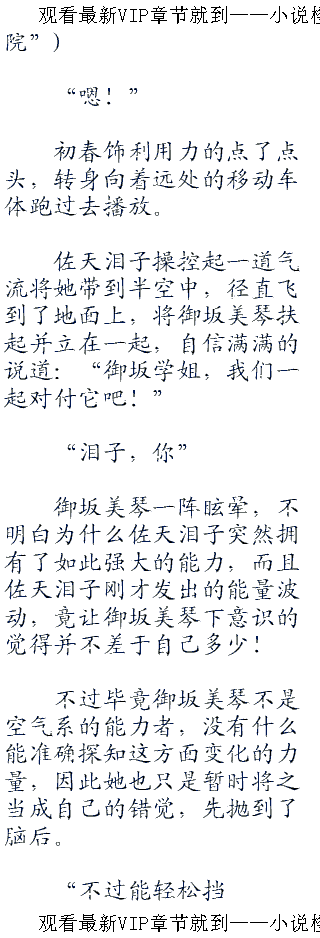 观看最新VIP章节就到——小说
院”)
“嗯！”
初春饰利用力的点了点
头，转身向着远处的移动车
体跑过去播放。
佐天泪子操控起一道气
流将她带到半空中，径直飞
到了地面上，将御坂美琴扶
起并立在一起，自信满满的
说道：“御坂学姐，我们一
起对付它吧！”
“泪子，你”
御坂美琴一阵眩晕，不
明白为什么佐天泪子突然拥
有了如此强大的能力，而且
佐天泪子刚才发出的能量波
动，竟让御坂美琴下意识的
觉得并不差于自己多少！
不过毕竟御坂美琴不是
空气系的能力者，没有什么
能准确探知这方面变化的力
量，因此她也只是暂时将之
当成自己的错觉，先抛到了
脑后。
“不过能轻松挡
观看最新VIP章节就到——小说